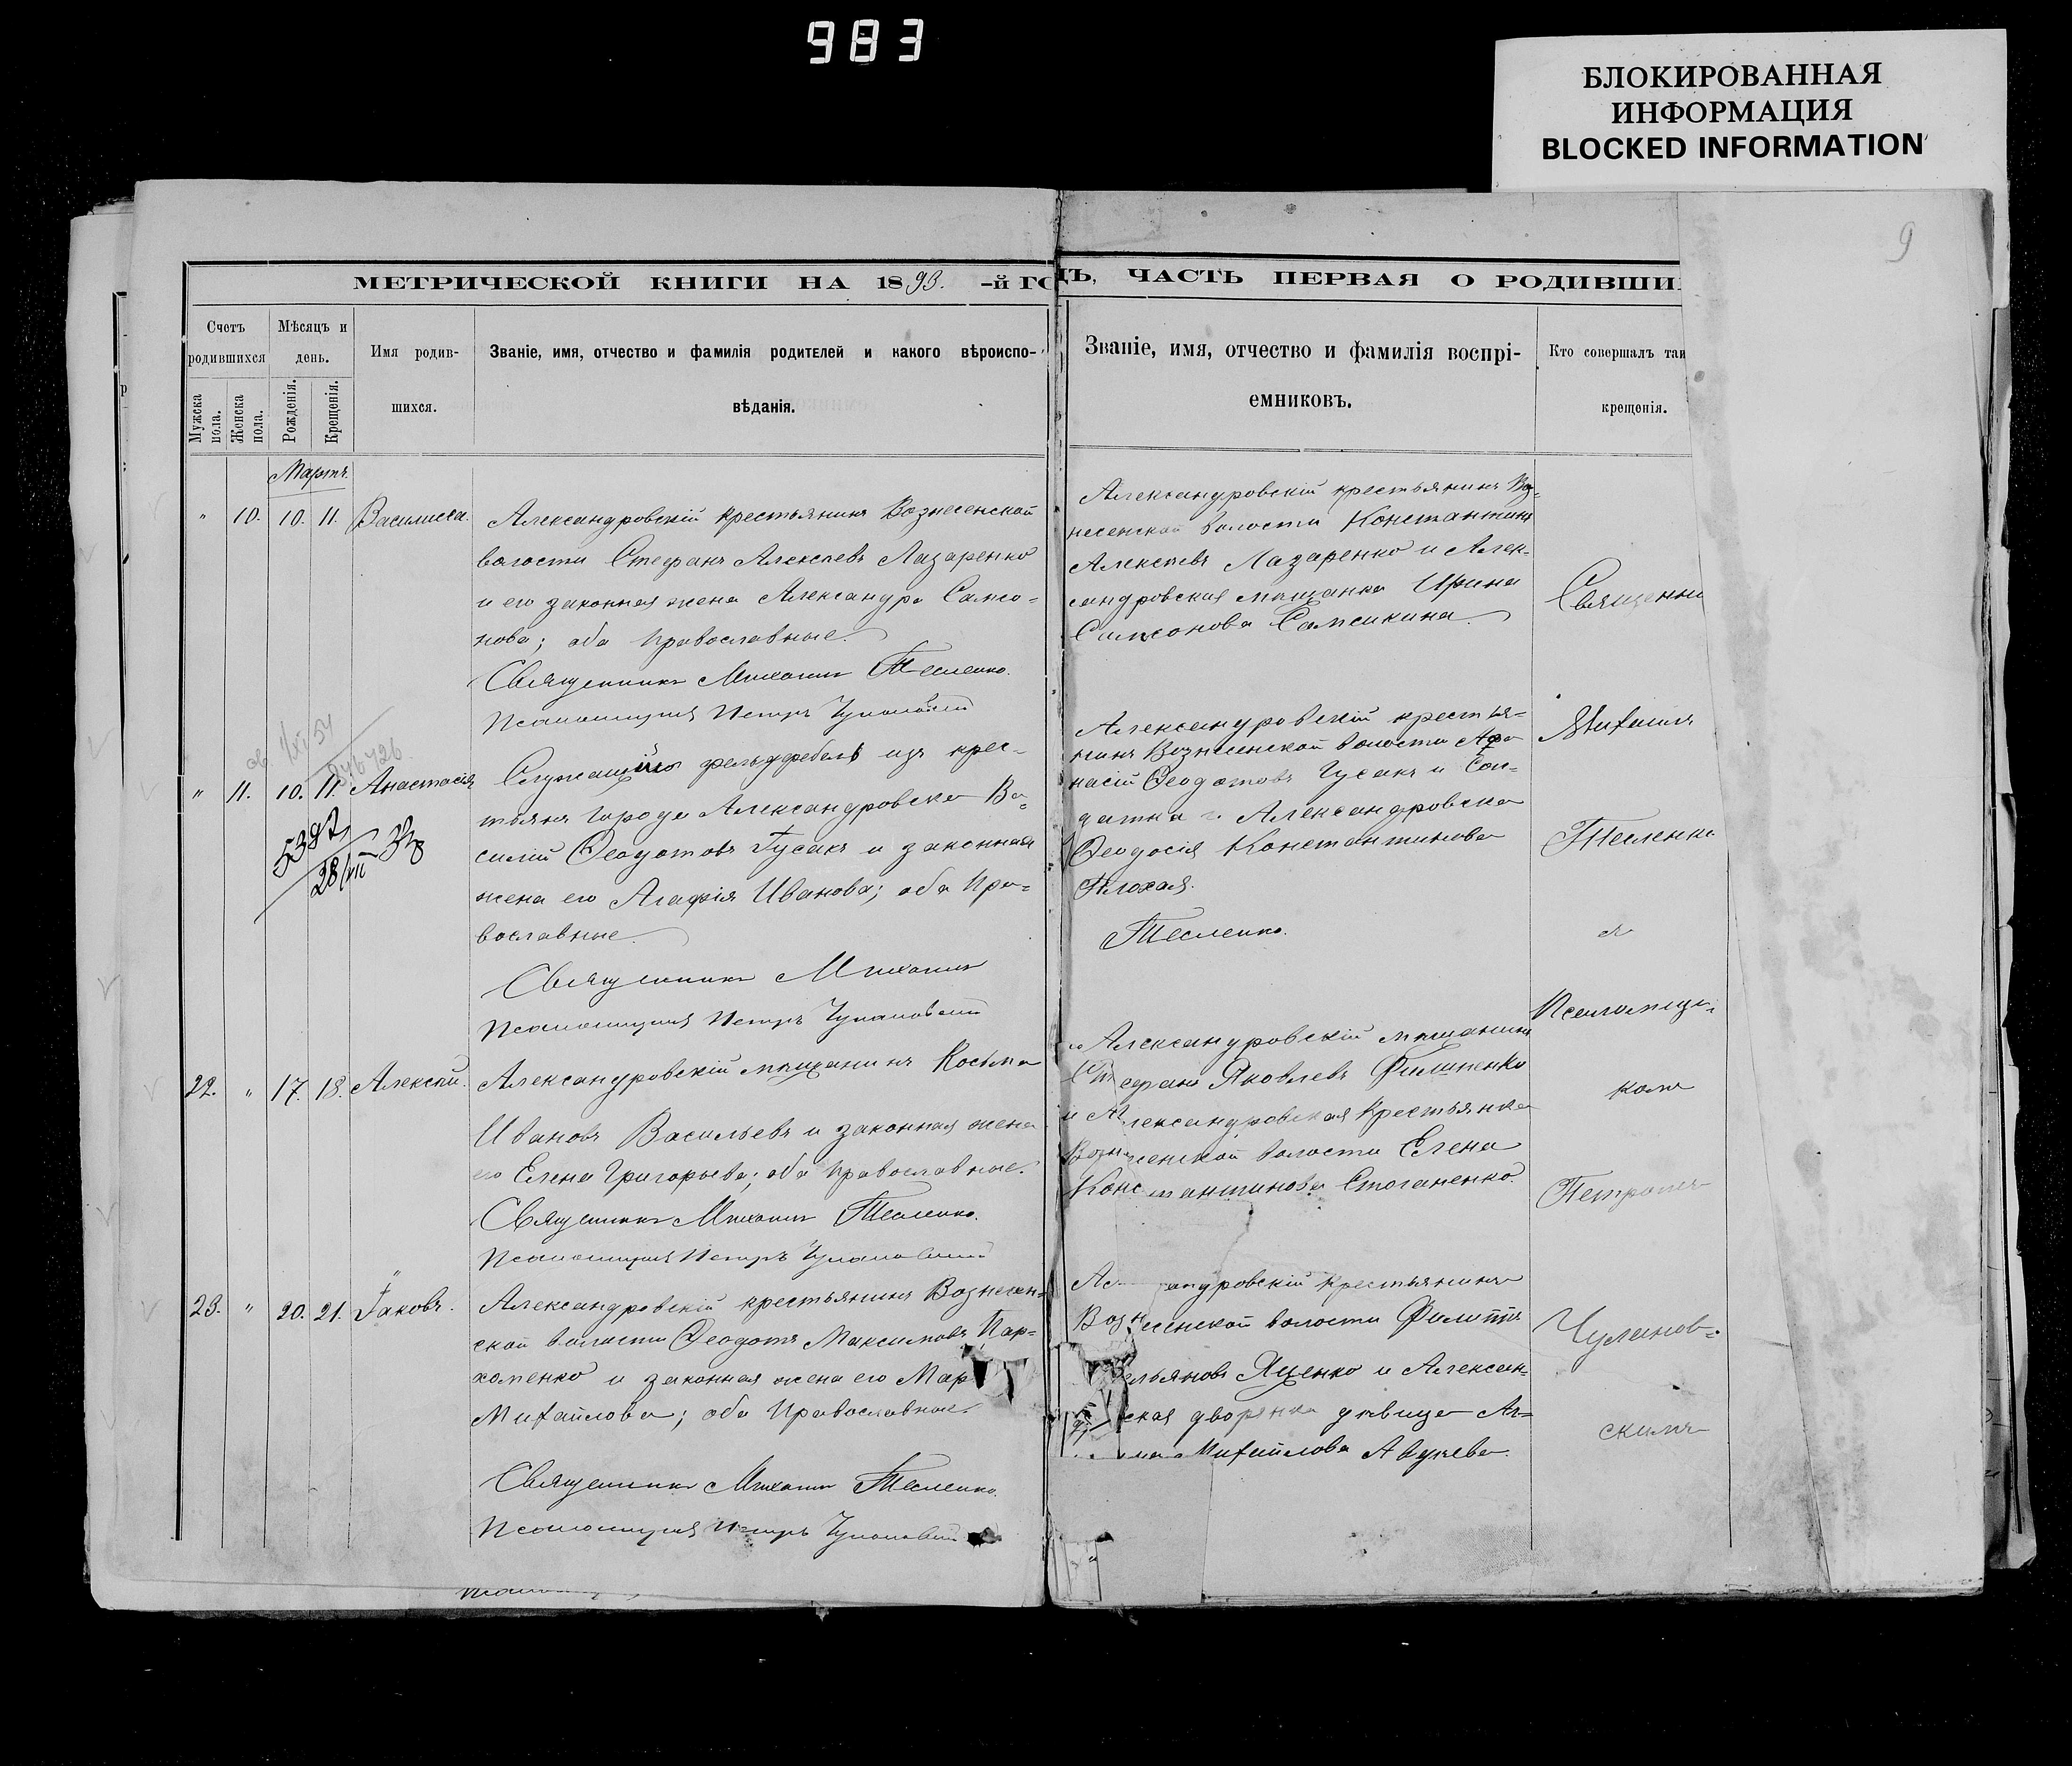 983
БЛОКИРОВАННАЯ
ИНФОРМАЦИЯ
BLOCKED INFORMATION
9
МЕТРИЧЕСКОЙ КНИГИ НА 1893. -й ГО
ДЪ, ЧАСТЬ ПЕРВАЯ О РОДИВШИ
Счетъ родившихся
Мужска пола.
Женска пола.
Мѣсяцъ и день.
Рожденія.
Крещенія.
Имя родив-
шихся.
Званіе, имя, отчество и фамилія родителей и какого вѣроиспо-
вѣданія.
Званіе, имя, отчество и фамилія воспрі-
емниковъ.
Кто совершалъ таи
крещенія.
Мартъ.
" 10. 10. 11. Василисса.
Александровскій крестьянинъ Вознесенской
волости Стефанъ Алексѣевъ Лазаренко
и его законная жена Александра Самсо-
нова; оба православные.
Священникъ Михаилъ Тесленко.
Псаломщикъ Петръ Чулановскій
Александровскій крестьянинъ Воз-
несенской волости Константинъ
Алексѣевъ Лазаренко и Алек-
сандровская мѣщанка Ирина
Самсонова
Священни
" 11. 10. 11. Анастасія
5382
28/VII 38
Служащій фельдфебель изъ крес-
тьянъ города Александровска Ва-
силій Ѳеодотовъ Гусакъ и законная
жена его Агафія Иванова; оба пра-
вославные.
Священникъ Михаилъ
Псаломщикъ Петръ Чулановскій
Александровскій крестья-
нинъ Вознесенской волости Афа-
насій Ѳеодотовъ Гусакъ и Сол-
датка г. Александровска
Ѳеодосія Константинова
Плохая.
Тесленко.
Михаилъ
Тесленко
и
Псаломщи-
комъ
22. " 17. 18. Алексѣй.
Александровскій мѣщанинъ Косьма
Ивановъ Васильевъ и законная жена
его Елена Григорьева; оба православные.
Священникъ Михаилъ Тесленко.
Псаломщикъ Петръ Чулановскій
Александровскій мѣщанинъ
Стефанъ Яковлевъ Филипенко
и Александровская крестьянка
Вознесенской волости Елена
Константинова Стоганенко.
Петромъ
23. " 20. 21. Іаковъ.
Александровскій крестьянинъ Вознесен-
ской волости Ѳеодотъ Максимовъ Пар-
хоменко и законная жена его Мар
Михайлова; оба православные.
Священникъ Михаилъ Тесленко.
Псаломщикъ Петръ Чулановскій
Александровскій крестьянинъ
Вознесенской волости Филиппъ
ельяновъ Яценко и Алексан-
ская дворянка дѣвица Ан-
Михайлова
Чуланов-
скимъ